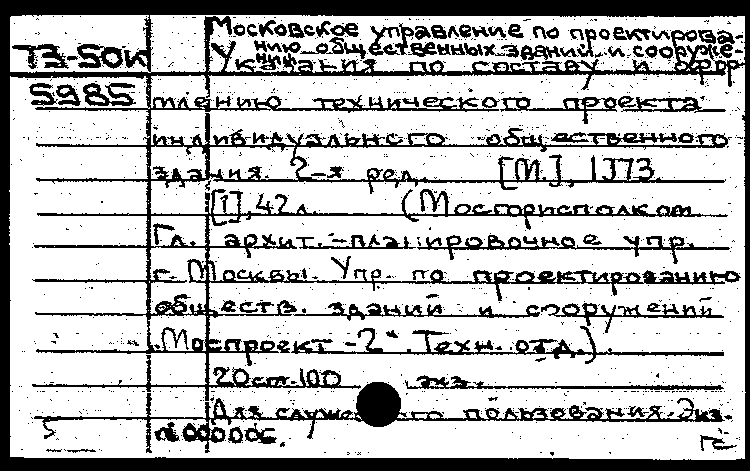 Московское управление по проектирова-
нию общественных зданий и сооруже-
ний
ТЗ-50к
Указания по составу и офор
5985
млению технического проекта
индивидуального общественного
здания. 2-я ред. [М.], 1973.
[1], 42 л. (Мосгорисполком.
Гл. архит.-планировочное упр.
г. Москвы. Упр. по проектированию
обществ. зданий и сооружений
„Моспроект-2“. Техн. отд.).
20см. 100 экз.
Для служебного пользования. Экз.
№ 000006.
5